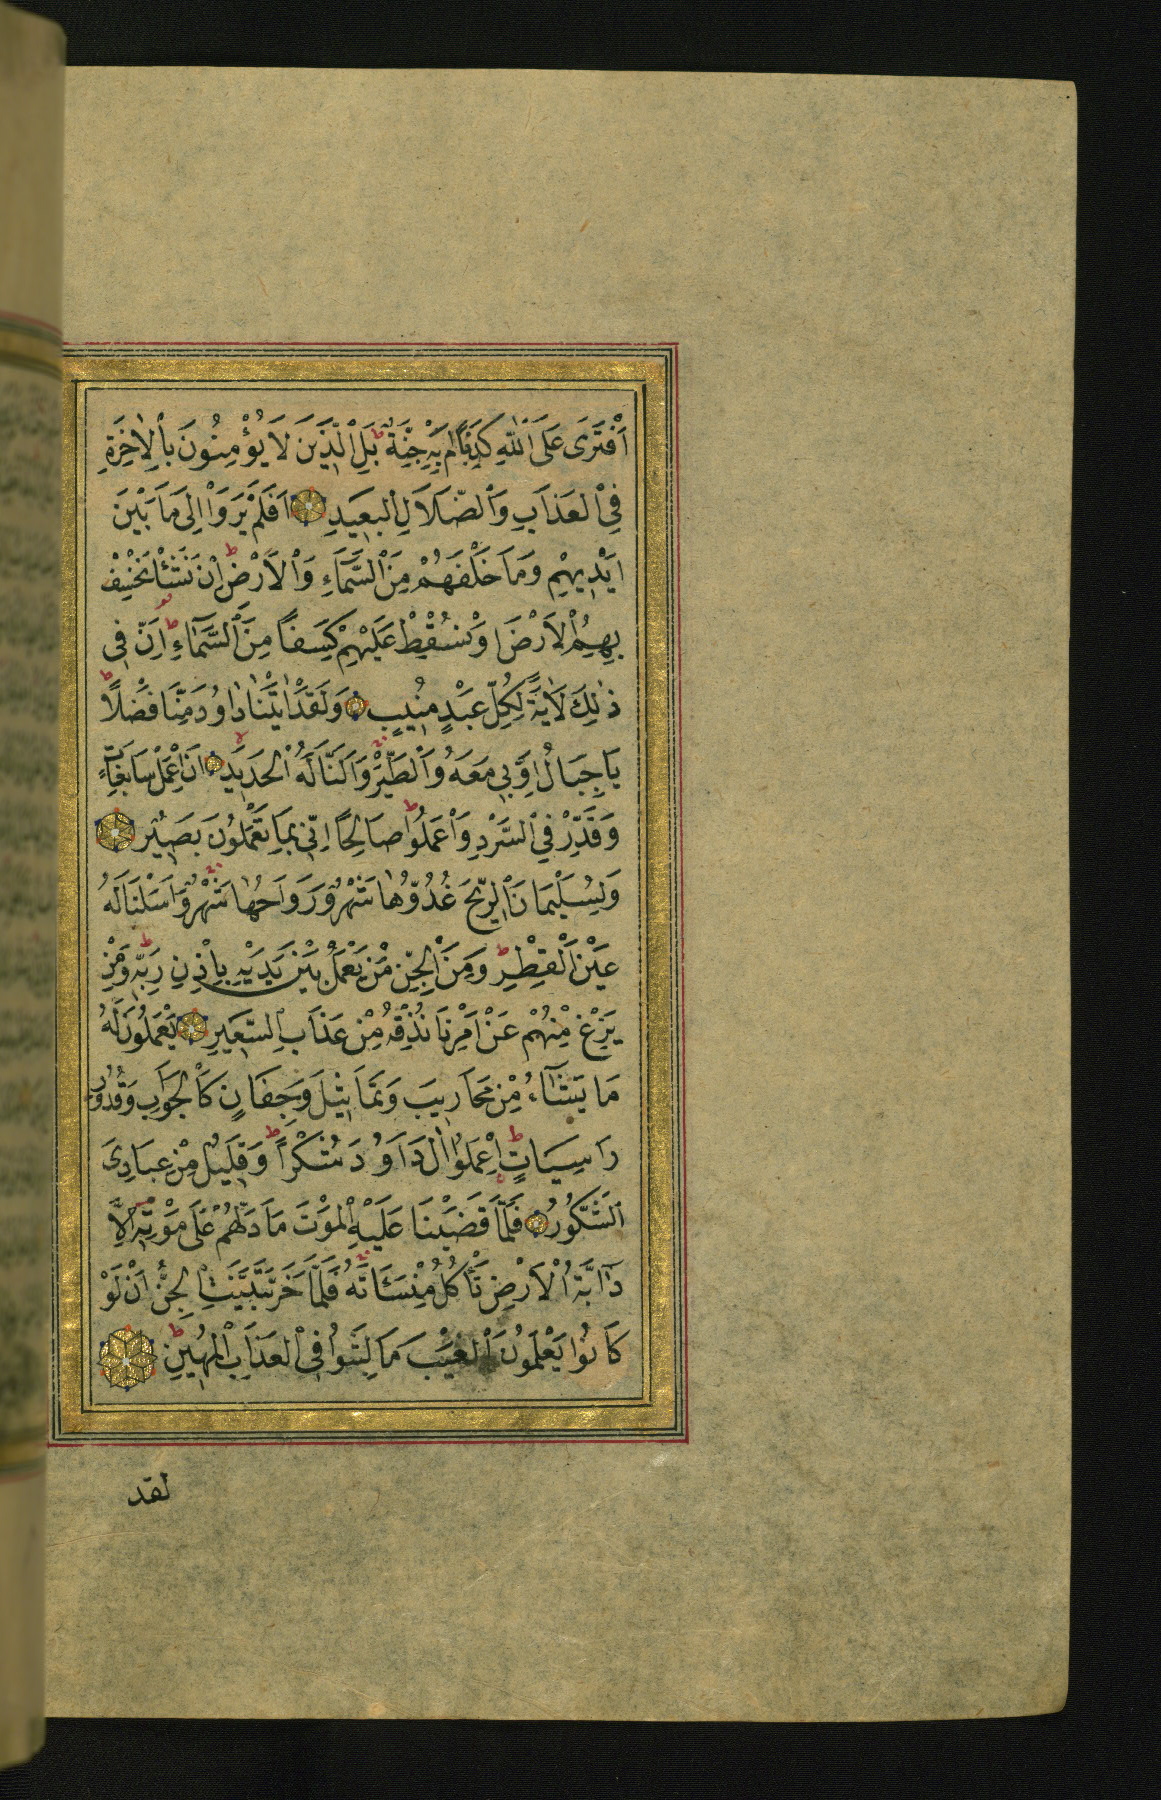 اَفْتَرَى عَلَى اللّٰهِ كَذِبًا اَمْ بِهِ جِنَّةٌ ط بَلِ الَّذِينَ لَا يُؤْمِنُونَ بِالْاٰخِرَةِ
فِي الْعَذَابِ وَالضَّلَالِ الْبَعِيدِ اَفَلَمْ يَرَوْا اِلٰى مَا بَيْنَ
اَيْدِيهِمْ وَمَا خَلْفَهُمْ مِنَ السَّمَاءِ وَالْاَرْضِ ط اِنْ نَشَأْ نَخْسِفْ
بِهِمُ الْاَرْضَ اَوْ نُسْقِطْ عَلَيْهِمْ كِسَفًا مِنَ السَّمَاءِ ط اِنَّ فِي
ذٰلِكَ لَاٰيَةً لِكُلِّ عَبْدٍ مُنِيبٍ وَلَقَدْ اٰتَيْنَا دَاوُدَ مِنَّا فَضْلًا ط
يَا جِبَالُ اَوِّبِي مَعَهُ وَالطَّيْرَ وَاَلَنَّا لَهُ الْحَدِيدَ لا اَنِ اعْمَلْ سَابِغَاتٍ
وَقَدِّرْ فِي السَّرْدِ وَاعْمَلُوا صَالِحًا ط اِنِّي بِمَا تَعْمَلُونَ بَصِيرٌ
وَلِسُلَيْمَانَ الرِّيحَ غُدُوُّهَا شَهْرٌ وَرَوَاحُهَا شَهْرٌ وَاَسَلْنَا لَهُ
عَيْنَ الْقِطْرِ ط وَمِنَ الْجِنِّ مَنْ يَعْمَلُ بَيْنَ يَدَيْهِ بِاِذْنِ رَبِّهِ ط وَمَنْ
يَزِغْ مِنْهُمْ عَنْ اَمْرِنَا نُذِقْهُ مِنْ عَذَابِ السَّعِيرِ يَعْمَلُونَ لَهُ
مَا يَشَاءُ مِنْ مَحَارِيبَ وَتَمَاثِيلَ وَجِفَانٍ كَالْجَوَابِ وَقُدُورٍ
رَاسِيَاتٍ ط اِعْمَلُوا اٰلَ دَاوُدَ شُكْرًا ط وَقَلِيلٌ مِنْ عِبَادِيَ
الشَّكُورُ فَلَمَّا قَضَيْنَا عَلَيْهِ الْمَوْتَ مَا دَلَّهُمْ عَلٰى مَوْتِهِ اِلَّا
دَابَّةُ الْاَرْضِ تَأْكُلُ مِنْسَأَتَهُ فَلَمَّا خَرَّ تَبَيَّنَتِ الْجِنُّ اَنْ لَوْ
كَانُوا يَعْلَمُونَ الْغَيْبَ مَا لَبِثُوا فِي الْعَذَابِ الْمُهِينِ ط
لقد